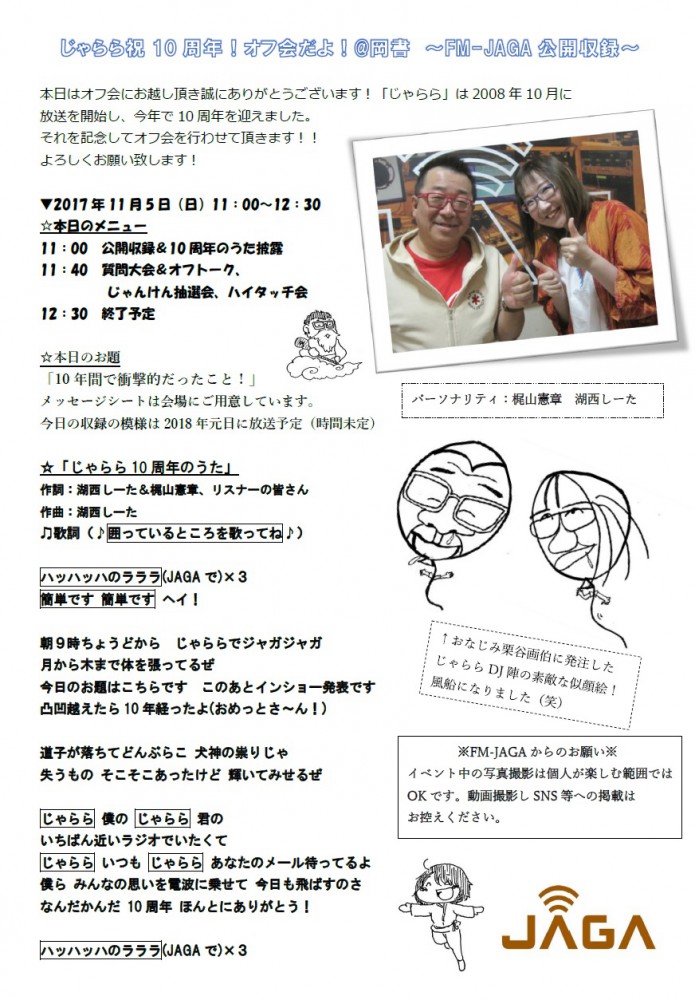 じゃらら祝 10 周年！オフ会だよ！@岡書　～FM-JAGA 公開収録～
本日はオフ会にお越し頂き誠にありがとうございます！「じゃらら」は 2008 年 10 月に
放送を開始し、今年で 10 周年を迎えました。
それを記念してオフ会を行わせて頂きます！！
よろしくお願い致します！
▼2017 年 11 月 5 日（日）11：00～12：30
☆本日のメニュー
11：00　公開収録＆10 周年のうた披露
11：40　質問大会＆オフトーク、
じゃんけん抽選会、ハイタッチ会
12：30　終了予定
☆本日のお題
「10 年間で衝撃的だったこと！」
メッセージシートは会場にご用意しています。
今日の収録の模様は 2018 年元日に放送予定（時間未定）
パーソナリティ：梶山憲章　湖西しーた
☆「じゃらら 10 周年のうた」
作詞：湖西しーた＆梶山憲章、リスナーの皆さん
作曲：湖西しーた
♫歌詞（♪囲っているところを歌ってね♪）
ハッハッハのラララ(JAGA で)×３
簡単です 簡単です ヘイ！
朝９時ちょうどから　じゃららでジャガジャガ
月から木まで体を張ってるぜ
今日のお題はこちらです　このあとインショー発表です
凸凹越えたら 10 年経ったよ(おめっとさ～ん！)
道子が落ちてどんぶらこ 犬神の祟りじゃ
失うもの そこそこあったけど 輝いてみせるぜ
じゃらら 僕の じゃらら 君の
いちばん近いラジオでいたくて
じゃらら いつも じゃらら あなたのメール待ってるよ
僕ら みんなの思いを電波に乗せて 今日も飛ばすのさ
なんだかんだ 10 周年 ほんとにありがとう！
ハッハッハのラララ(JAGA で)×３
↑おなじみ栗谷画伯に発注した
じゃらら DJ 陣の素敵な似顔絵！
風船になりました（笑）
※FM-JAGA からのお願い※
イベント中の写真撮影は個人が楽しむ範囲では
OK です。動画撮影し SNS 等への掲載は
お控えください。
JAGA